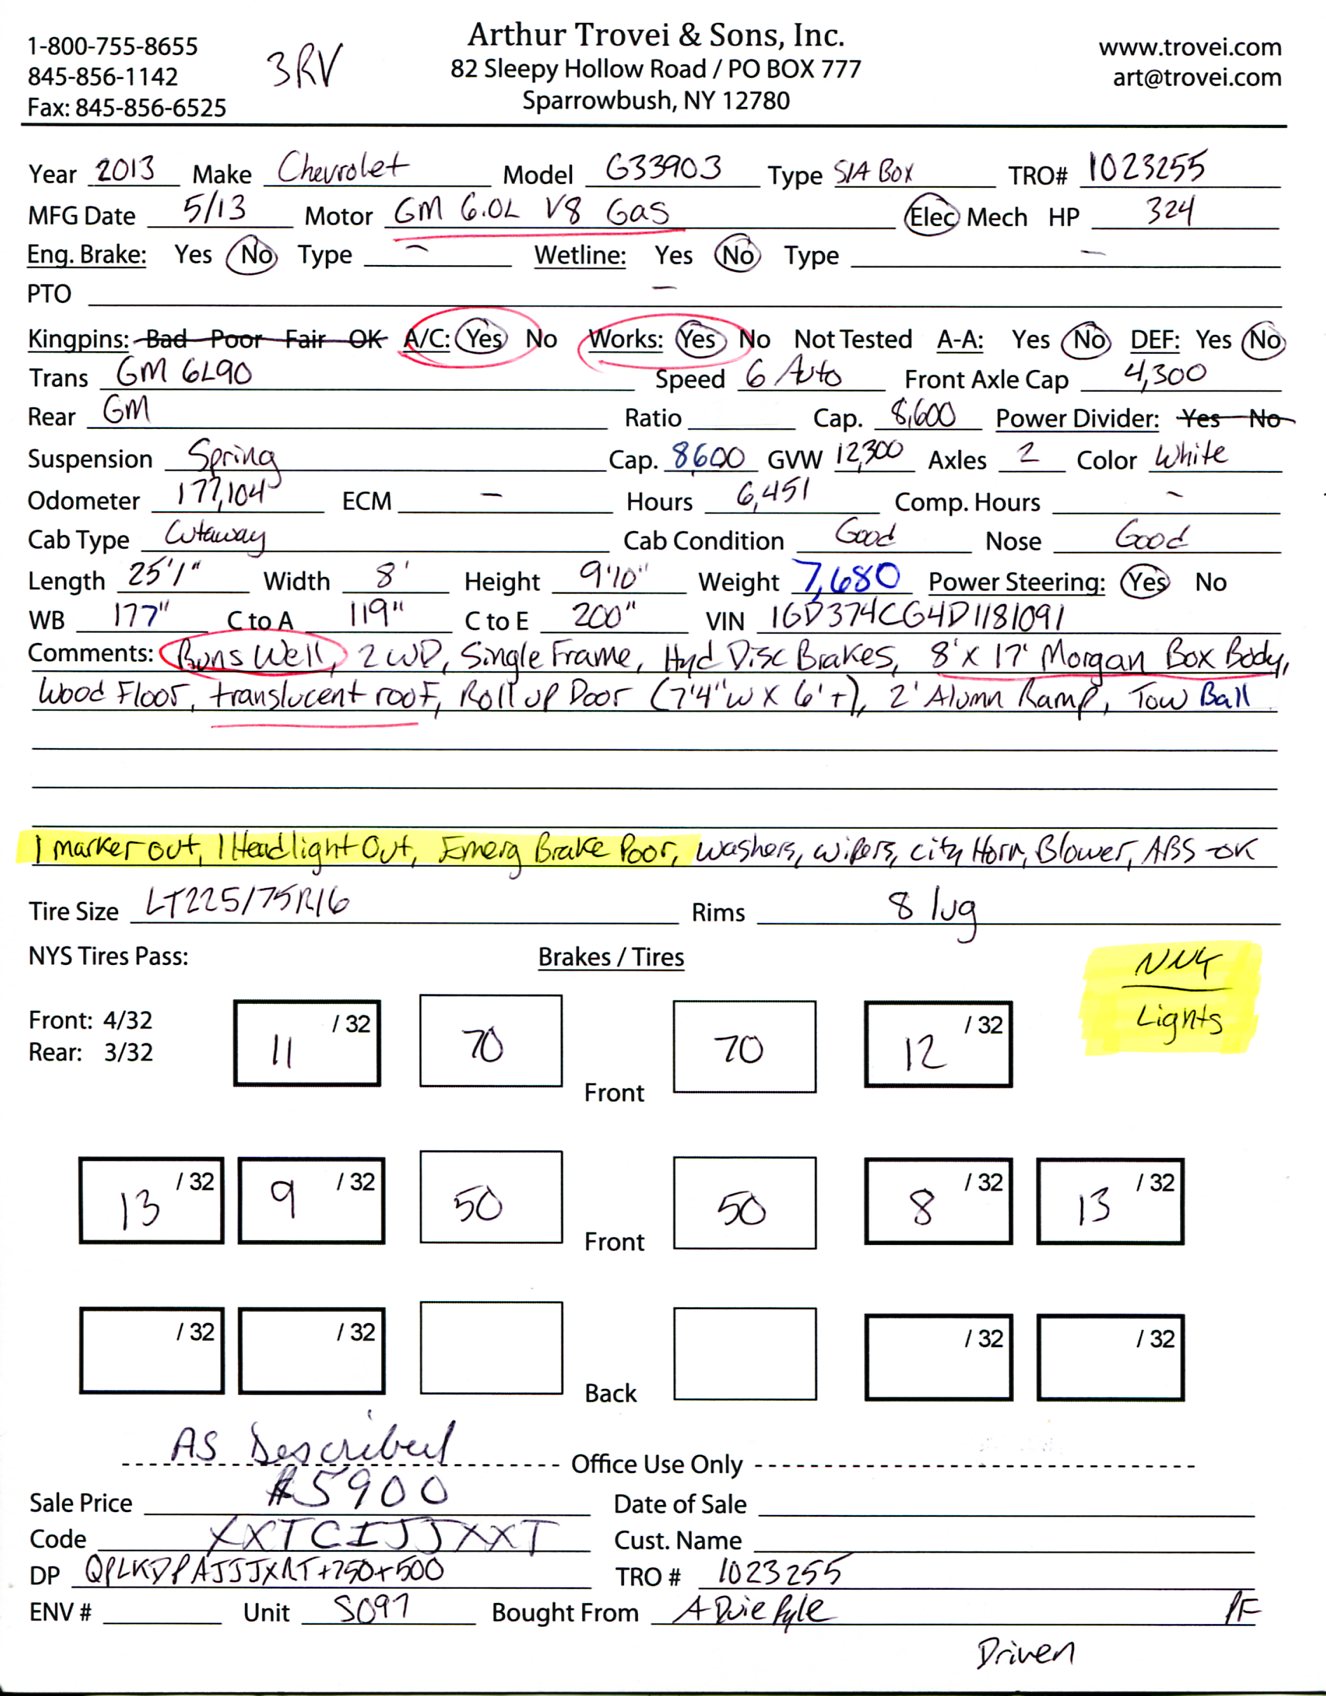 1-800-755-8655
845-856-1142
Fax: 845-856-6525
3RV
Arthur Trovei & Sons, Inc.
82 Sleepy Hollow Road / PO BOX 777
Sparrowbush, NY 12780
www.trovei.com
art@trovei.com
Year 2013 Make Chevrolet Model G33903 Type S/A Box TRO# 1023255
MFG Date 5/13 Motor GM 6.0L V8 Gas Elec Mech HP 324
Eng. Brake: Yes No Type — Wetline: Yes No Type —
PTO —
Kingpins: Bad Poor Fair OK A/C: Yes No Works: Yes No Not Tested A-A: Yes No DEF: Yes No
Trans GM 6L90 Speed 6 Auto Front Axle Cap 4,300
Rear GM Ratio Cap. 8,600 Power Divider: Yes No
Suspension Spring Cap. 8600 GVW 12,300 Axles 2 Color White
Odometer 177,104 ECM — Hours 6,451 Comp. Hours —
Cab Type Cutaway Cab Condition Good Nose Good
Length 25'1" Width 8' Height 9'10" Weight 7,680 Power Steering: Yes No
WB 177" C to A 119" C to E 200" VIN 1GD374CG4D1181091
Comments: Runs Well, 2WD, Single Frame, Hyd Disc Brakes, 8' x 17' Morgan Box Body,
Wood Floor, translucent roof, Roll up Door (7'4"W x 6'+), 2' Alumn Ramp, Tow Ball
1 marker out, 1 Headlight Out, Emerg Brake Poor, washers, wipers, city Horn, Blower, ABS -OK
Tire Size LT225/75R16 Rims 8 lug
NYS Tires Pass: Brakes / Tires
NUG
Lights
Front: 4/32
Rear: 3/32
11 /32 70 Front 70 12 /32
13 /32 9 /32 50 Front 50 8 /32 13 /32
/32 /32 Back /32 /32
As Described
Office Use Only
Sale Price $5900 Date of Sale
Code XXTCIJJXXT Cust. Name
DP QPLKDPAJJJXAT+750+500 TRO # 1023255
ENV # Unit S097 Bought From A Duie Pyle PF
Driven